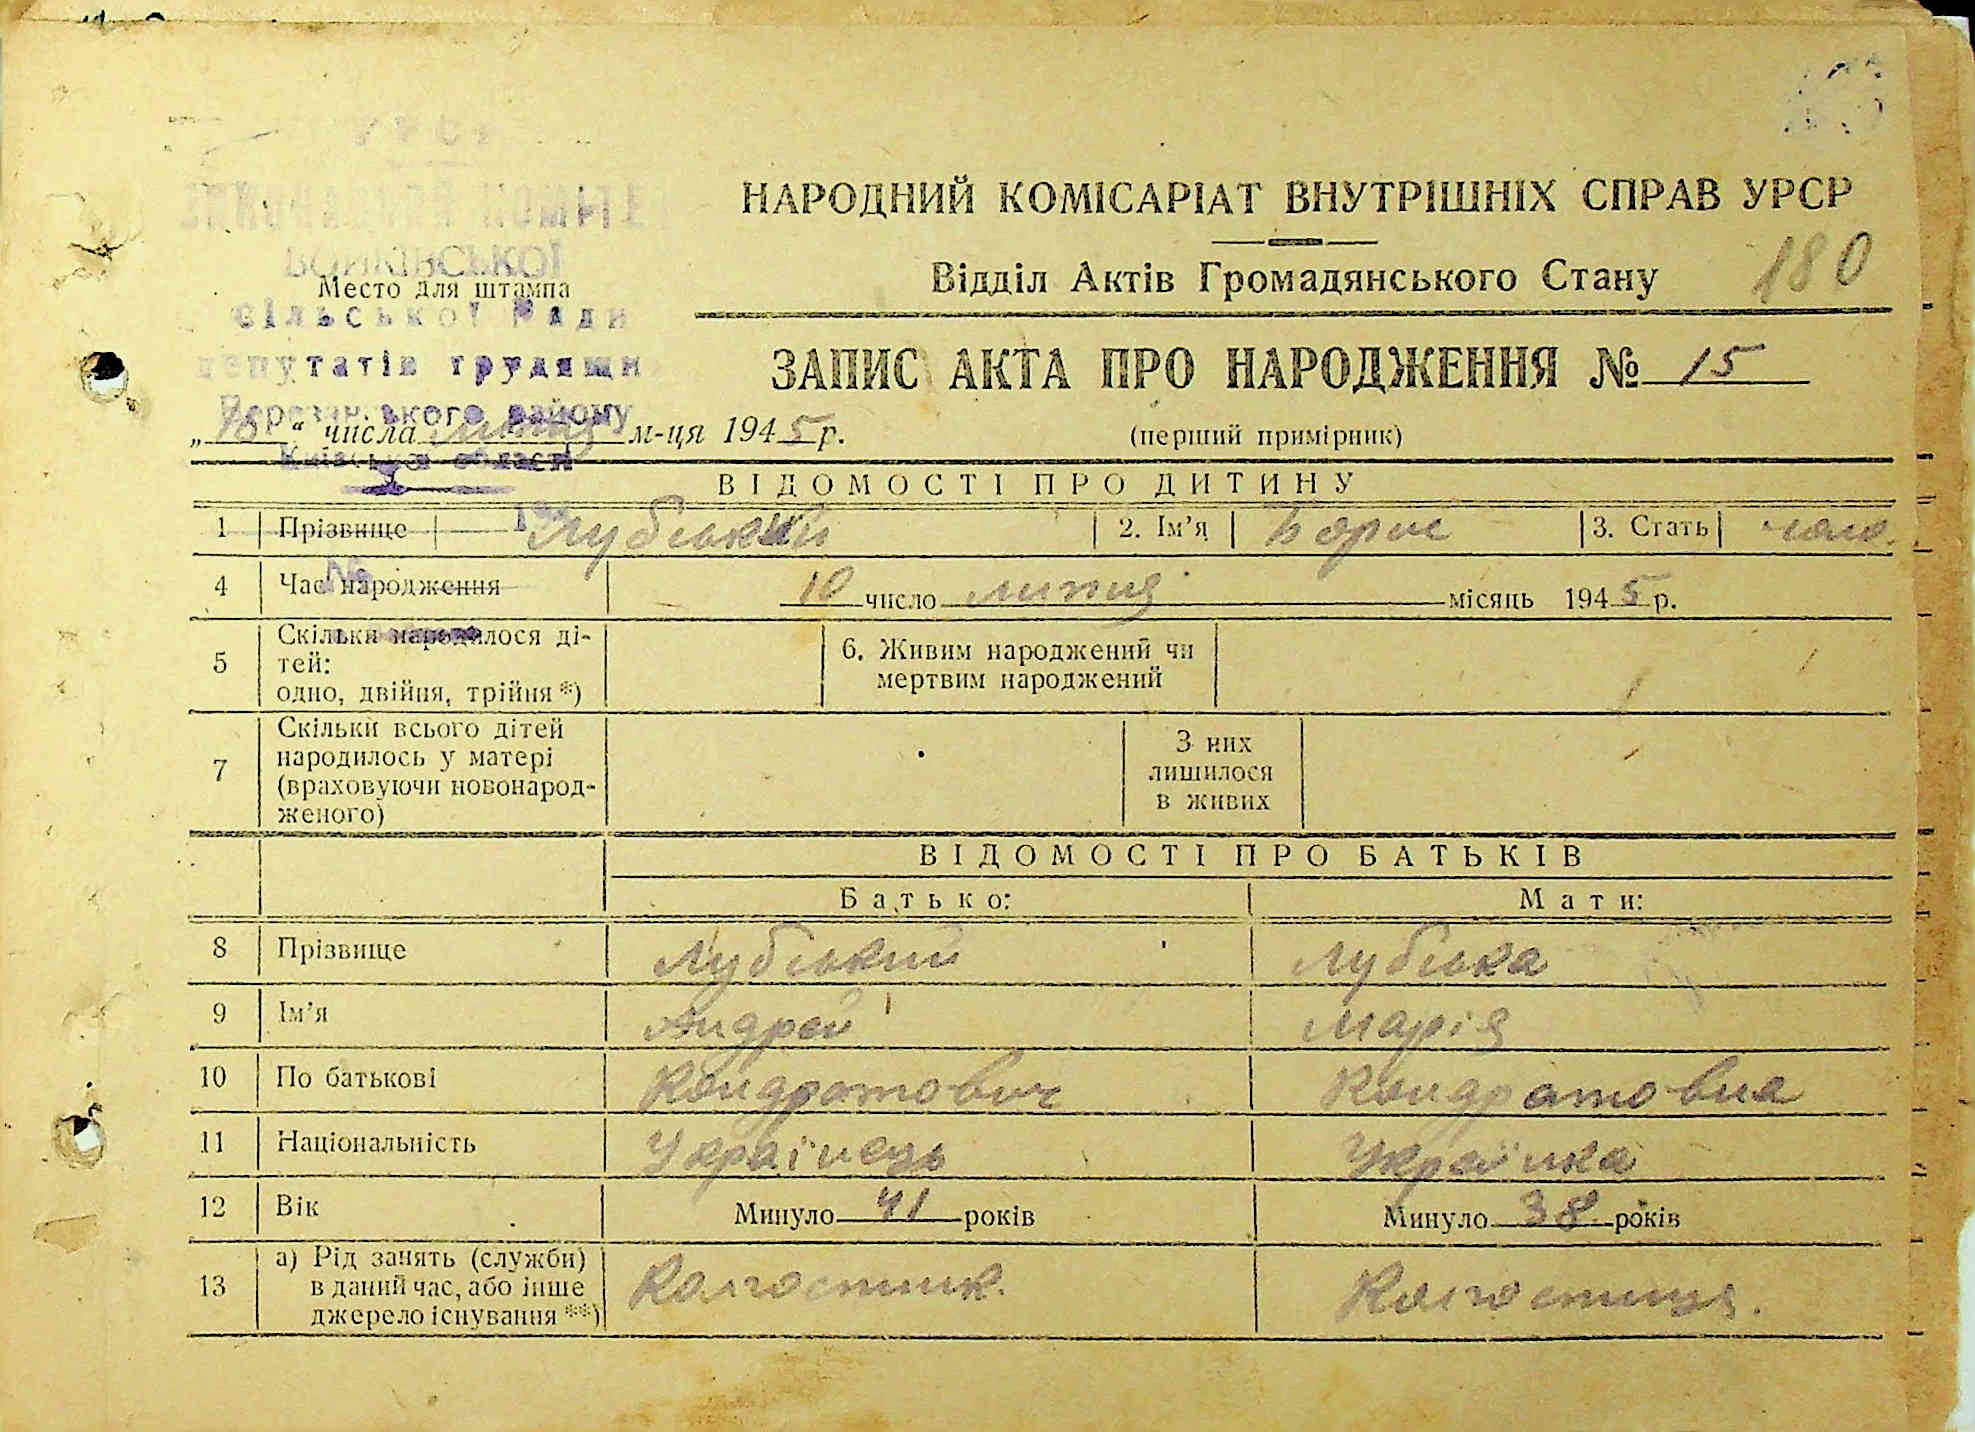 УРСР
ВИКОНАВЧИЙ КОМІТЕТ
ВОЙКІВСЬКОЇ
Место для штампа
сільської Ради
депутатів трудящих
Березанського району
Київської області
НАРОДНИЙ КОМІСАРІАТ ВНУТРІШНІХ СПРАВ УРСР
Відділ Актів Громадянського Стану
180
ЗАПИС АКТА ПРО НАРОДЖЕННЯ № 15
„ “ числа липня м-ця 1945 р.
(перший примірник)
ВІДОМОСТІ ПРО ДИТИНУ
1 Прізвище Лубський 2. Ім’я Борис 3. Стать чоло.
4 Час народження 10 число липня місяць 1945 р.
5 Скільки народилося ді-
тей:
одно, двійня, трійня *)
6. Живим народжений чи
мертвим народжений
7 Скільки всього дітей
народилось у матері
(враховуючи новонарод-
женого)
З них
лишилося
в живих
ВІДОМОСТІ ПРО БАТЬКІВ
Батько: Мати:
8 Прізвище Лубський Лубська
9 Ім’я Андрей Марія
10 По батькові Кондратович Кондратовна
11 Національність Українець Українка
12 Вік Минуло 41 років Минуло 38 років
13 а) Рід занять (служби)
в даний час, або інше
джерело існування **)
Колгостник. Колгостниця.